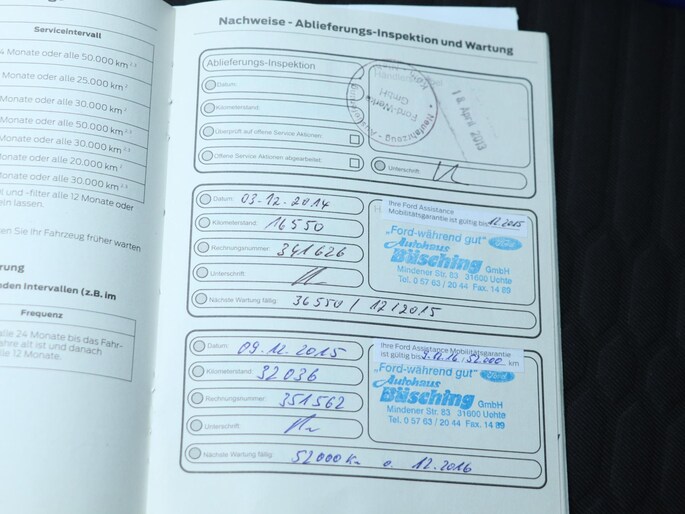 Serviceintervall
4 Monate oder alle 50.000 km
Monate oder alle 25.000 km
Monate oder alle 30.000 km
Monate oder alle 50.000 km
Monate oder alle 30.000 km
Monate oder alle 20.000 km
Monate oder alle 30.000 km
und -filter alle 12 Monate oder
ein lassen.
en Sie Ihr Fahrzeug früher warten
rung
nden Intervallen (z.B. im
Frequenz
alle 24 Monate bis das Fahr-
re alt ist und danach
lle 12 Monate.
Nachweise - Ablieferungs-Inspektion und Wartung
Ablieferungs-Inspektion
Datum:
Kilometerstand:
Überprüft auf offene Service Aktionen:
Offene Service Aktionen abgearbeitet:
Ford-Werke
GmbH
18. April 2013
Unterschrift:
Datum: 03.12.2014
Kilometerstand: 16550
Rechnungsnummer: 341626
Unterschrift:
Nächste Wartung fällig: 36550 / 12/2015
Ihre Ford Assistance
Mobilitätsgarantie ist gültig bis 12.2015
„Ford-während gut" Ford
Autohaus
Büsching GmbH
Mindener Str. 83 31600 Uchte
Tel. 0 57 63 / 20 44 Fax. 14 89
Datum: 09.12.2015
Kilometerstand: 32036
Rechnungsnummer: 351562
Unterschrift:
Nächste Wartung fällig: 52000 Km o. 12.2016
Ihre Ford Assistance Mobilitätsgarantie
ist gültig bis 9.12.16, 52.000 km
„Ford-während gut" Ford
Autohaus
Büsching GmbH
Mindener Str. 83 31600 Uchte
Tel. 0 57 63 / 20 44 Fax. 14 89